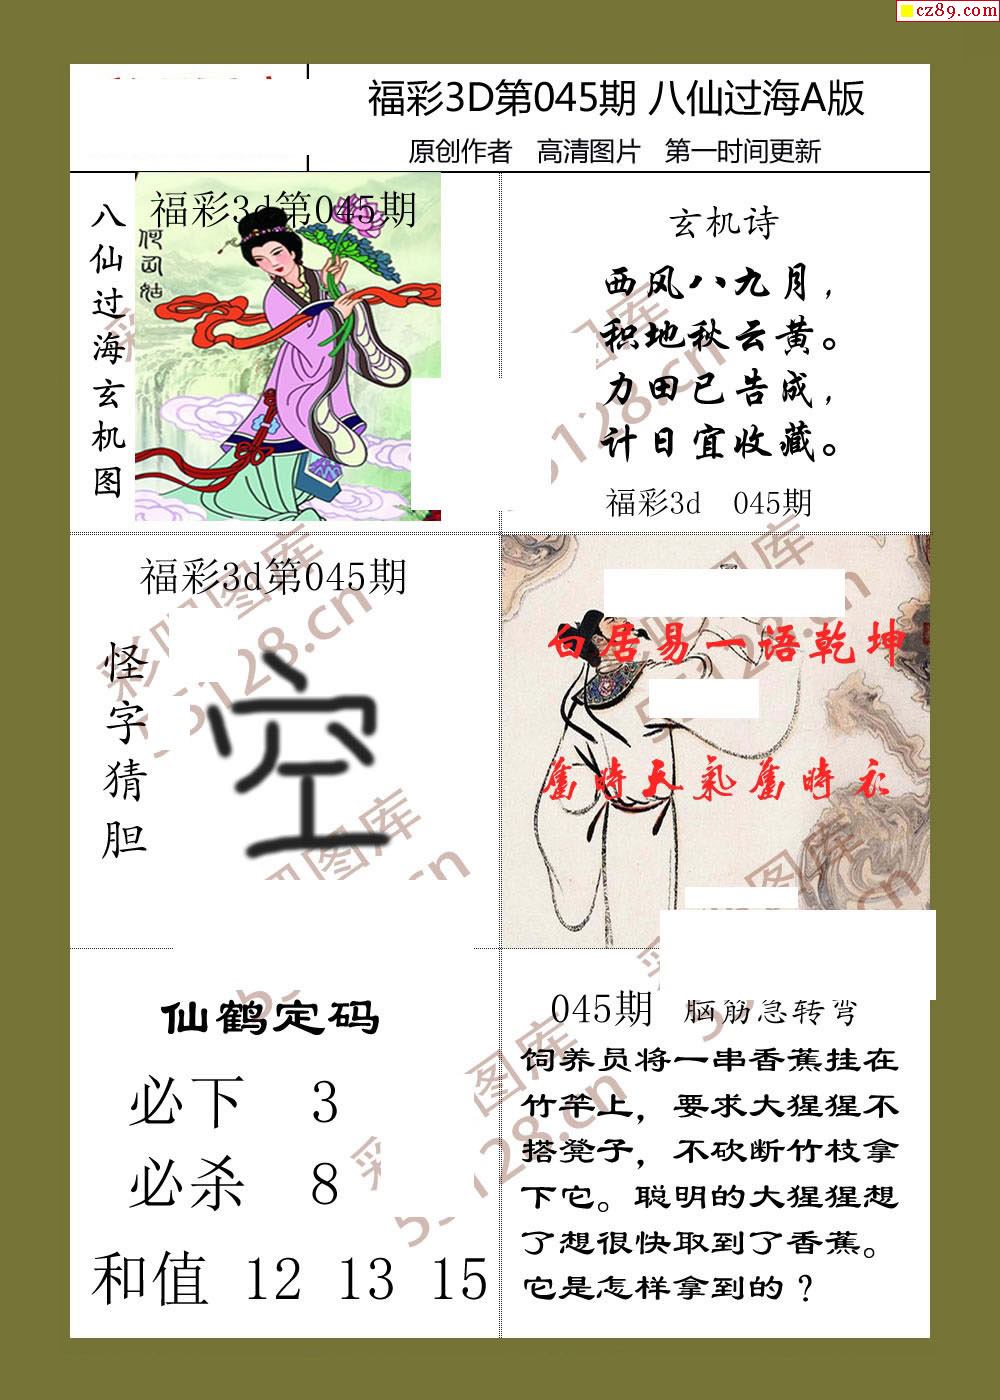 cz89.com
福彩3D第045期 八仙过海A版
原创作者 高清图片 第一时间更新
八仙过海玄机图
福彩3d第045期
何仙姑
玄机诗
西风八九月，
积地秋云黄。
力田已告成，
计日宜收藏。
福彩3d 045期
福彩3d第045期
怪字猜胆
空
白居易一语乾坤
旧時天氣旧時衣
仙鹤定码
必下 3
必杀 8
和值 12 13 15
045期 脑筋急转弯
饲养员将一串香蕉挂在
竹竿上，要求大猩猩不
搭凳子，不砍断竹枝拿
下它。聪明的大猩猩想
了想很快取到了香蕉。
它是怎样拿到的？